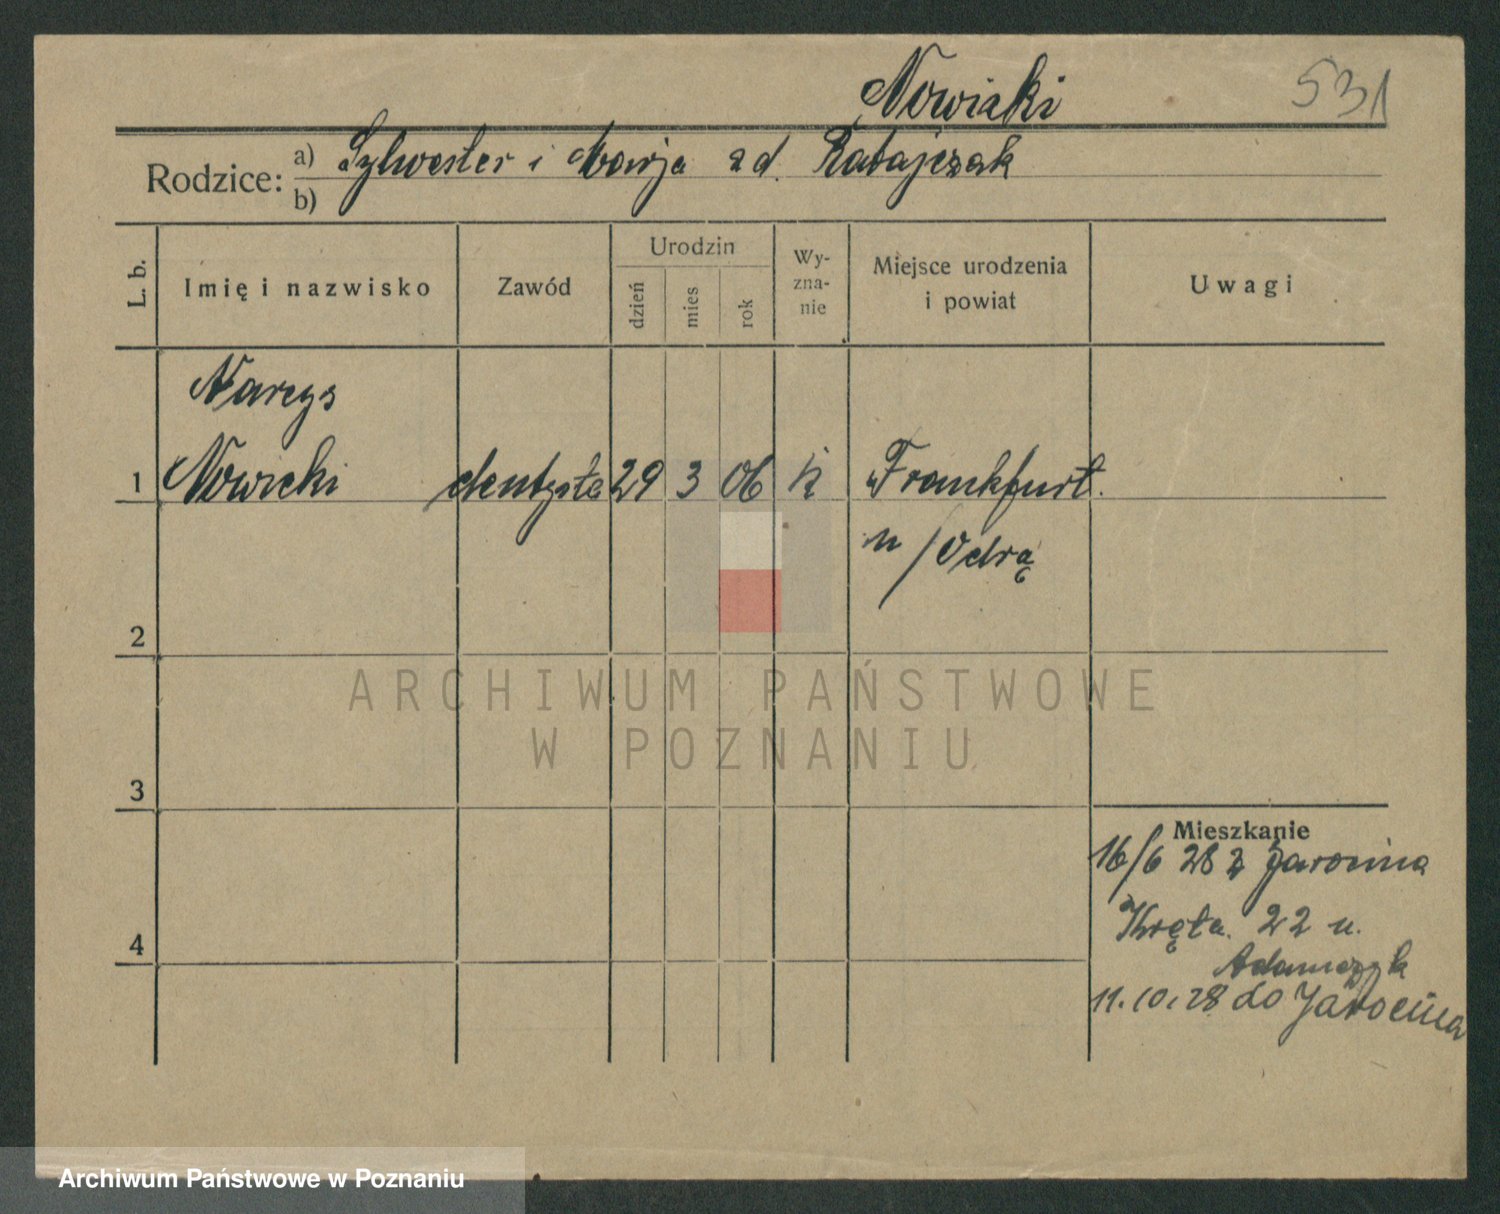 Nowicki
531
Rodzice: a) Sylwester i Marja z d. Ratajczak
b)
L. b. Imię i nazwisko Zawód Urodzin dzień mies rok Wy-zna-nie Miejsce urodzenia i powiat Uwagi
Narcys
1 Nowicki dentysta 29 3 06 k Frankfurt
n/Odrą
2
ARCHIWUM PAŃSTWOWE
W POZNANIU
3
Mieszkanie
16/6 28 z Jarocina
Kręta 22 u.
4
Adamczyk
11.10.28 do Jarocina
Archiwum Państwowe w Poznaniu